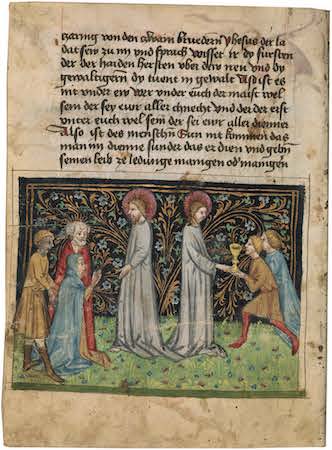 von den czbain bruedern yhesus der la
dat sew zu im vnd sprach wisset ir dy fursten
der der haiden hersten vber vnd dy
gewaltigern dy tuent in gewalt ist es
nit vnder ew wer vnder euch der maist wel
sein der sey ewr aller chnecht vnd der der erst
vnter euch wel sein der sei ewr aller dienner
Also ist des menschn Sun nit kummen das
man im dienne sunder das er dien vnd gebn
seinen leib ze ledunge manigen od' manigen